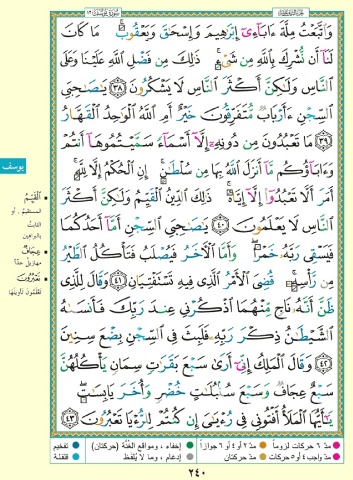 سورة يوسف ١٢
وَٱتَّبَعْتُ مِلَّةَ ءَابَآءِىٓ إِبْرَٰهِيمَ وَإِسْحَٰقَ وَيَعْقُوبَ ۚ مَا كَانَ
لَنَآ أَن نُّشْرِكَ بِٱللَّهِ مِن شَىْءٍ ۚ ذَٰلِكَ مِن فَضْلِ ٱللَّهِ عَلَيْنَا وَعَلَى
ٱلنَّاسِ وَلَٰكِنَّ أَكْثَرَ ٱلنَّاسِ لَا يَشْكُرُونَ ٣٨ يَٰصَىٰحِبَىِ
ٱلسِّجْنِ ءَأَرْبَابٌ مُّتَفَرِّقُونَ خَيْرٌ أَمِ ٱللَّهُ ٱلْوَٰحِدُ ٱلْقَهَّارُ
٣٩ مَا تَعْبُدُونَ مِن دُونِهِۦٓ إِلَّآ أَسْمَآءً سَمَّيْتُمُوهَآ أَنتُمْ
وَءَابَآؤُكُم مَّآ أَنزَلَ ٱللَّهُ بِهَا مِن سُلْطَٰنٍ ۚ إِنِ ٱلْحُكْمُ إِلَّا لِلَّهِ ۚ
أَمَرَ أَلَّا تَعْبُدُوٓا۟ إِلَّآ إِيَّاهُ ۚ ذَٰلِكَ ٱلدِّينُ ٱلْقَيِّمُ وَلَٰكِنَّ أَكْثَرَ
ٱلنَّاسِ لَا يَعْلَمُونَ ٤٠ يَٰصَىٰحِبَىِ ٱلسِّجْنِ أَمَّآ أَحَدُكُمَا
فَيَسْقِى رَبَّهُۥ خَمْرًا ۖ وَأَمَّا ٱلْءَاخَرُ فَيُصْلَبُ فَتَأْكُلُ ٱلطَّيْرُ
مِن رَّأْسِهِۦ ۚ قُضِىَ ٱلْأَمْرُ ٱلَّذِى فِيهِ تَسْتَفْتِيَانِ ٤١ وَقَالَ لِلَّذِى
ظَنَّ أَنَّهُۥ نَاجٍ مِّنْهُمَا ٱذْكُرْنِى عِندَ رَبِّكَ فَأَنسَىٰهُ
ٱلشَّيْطَٰنُ ذِكْرَ رَبِّهِۦ فَلَبِثَ فِى ٱلسِّجْنِ بِضْعَ سِنِينَ
٤٢ وَقَالَ ٱلْمَلِكُ إِنِّىٓ أَرَىٰ سَبْعَ بَقَرَٰتٍ سِمَانٍ يَأْكُلُهُنَّ
سَبْعٌ عِجَافٌ وَسَبْعَ سُنۢبُلَٰتٍ خُضْرٍ وَأُخَرَ يَابِسَٰتٍ ۖ
يَٰٓأَيُّهَا ٱلْمَلَأُ أَفْتُونِى فِى رُءْيَٰىَ إِن كُنتُمْ لِلرُّءْيَا تَعْبُرُونَ ٤٣
يوسف
ٱلْقَيِّمُ
المستقيم، أو
الثابت
بالبراهين
عِجَافٌ
مهازيل جدًّا
تَعْبُرُونَ
تعلمون تأويلها
مدّ ٦ حركات لزوماً
مدّ ٢ أو ٤ أو ٦ جوازاً
إخفاء، ومواقع الغُنَّة (حركتان)
تفخيم
مدّ واجب ٤ أو ٥ حركات
مدّ حركتان
إدغام، وما لا يُلفظ
قلقلة
٢٤٠